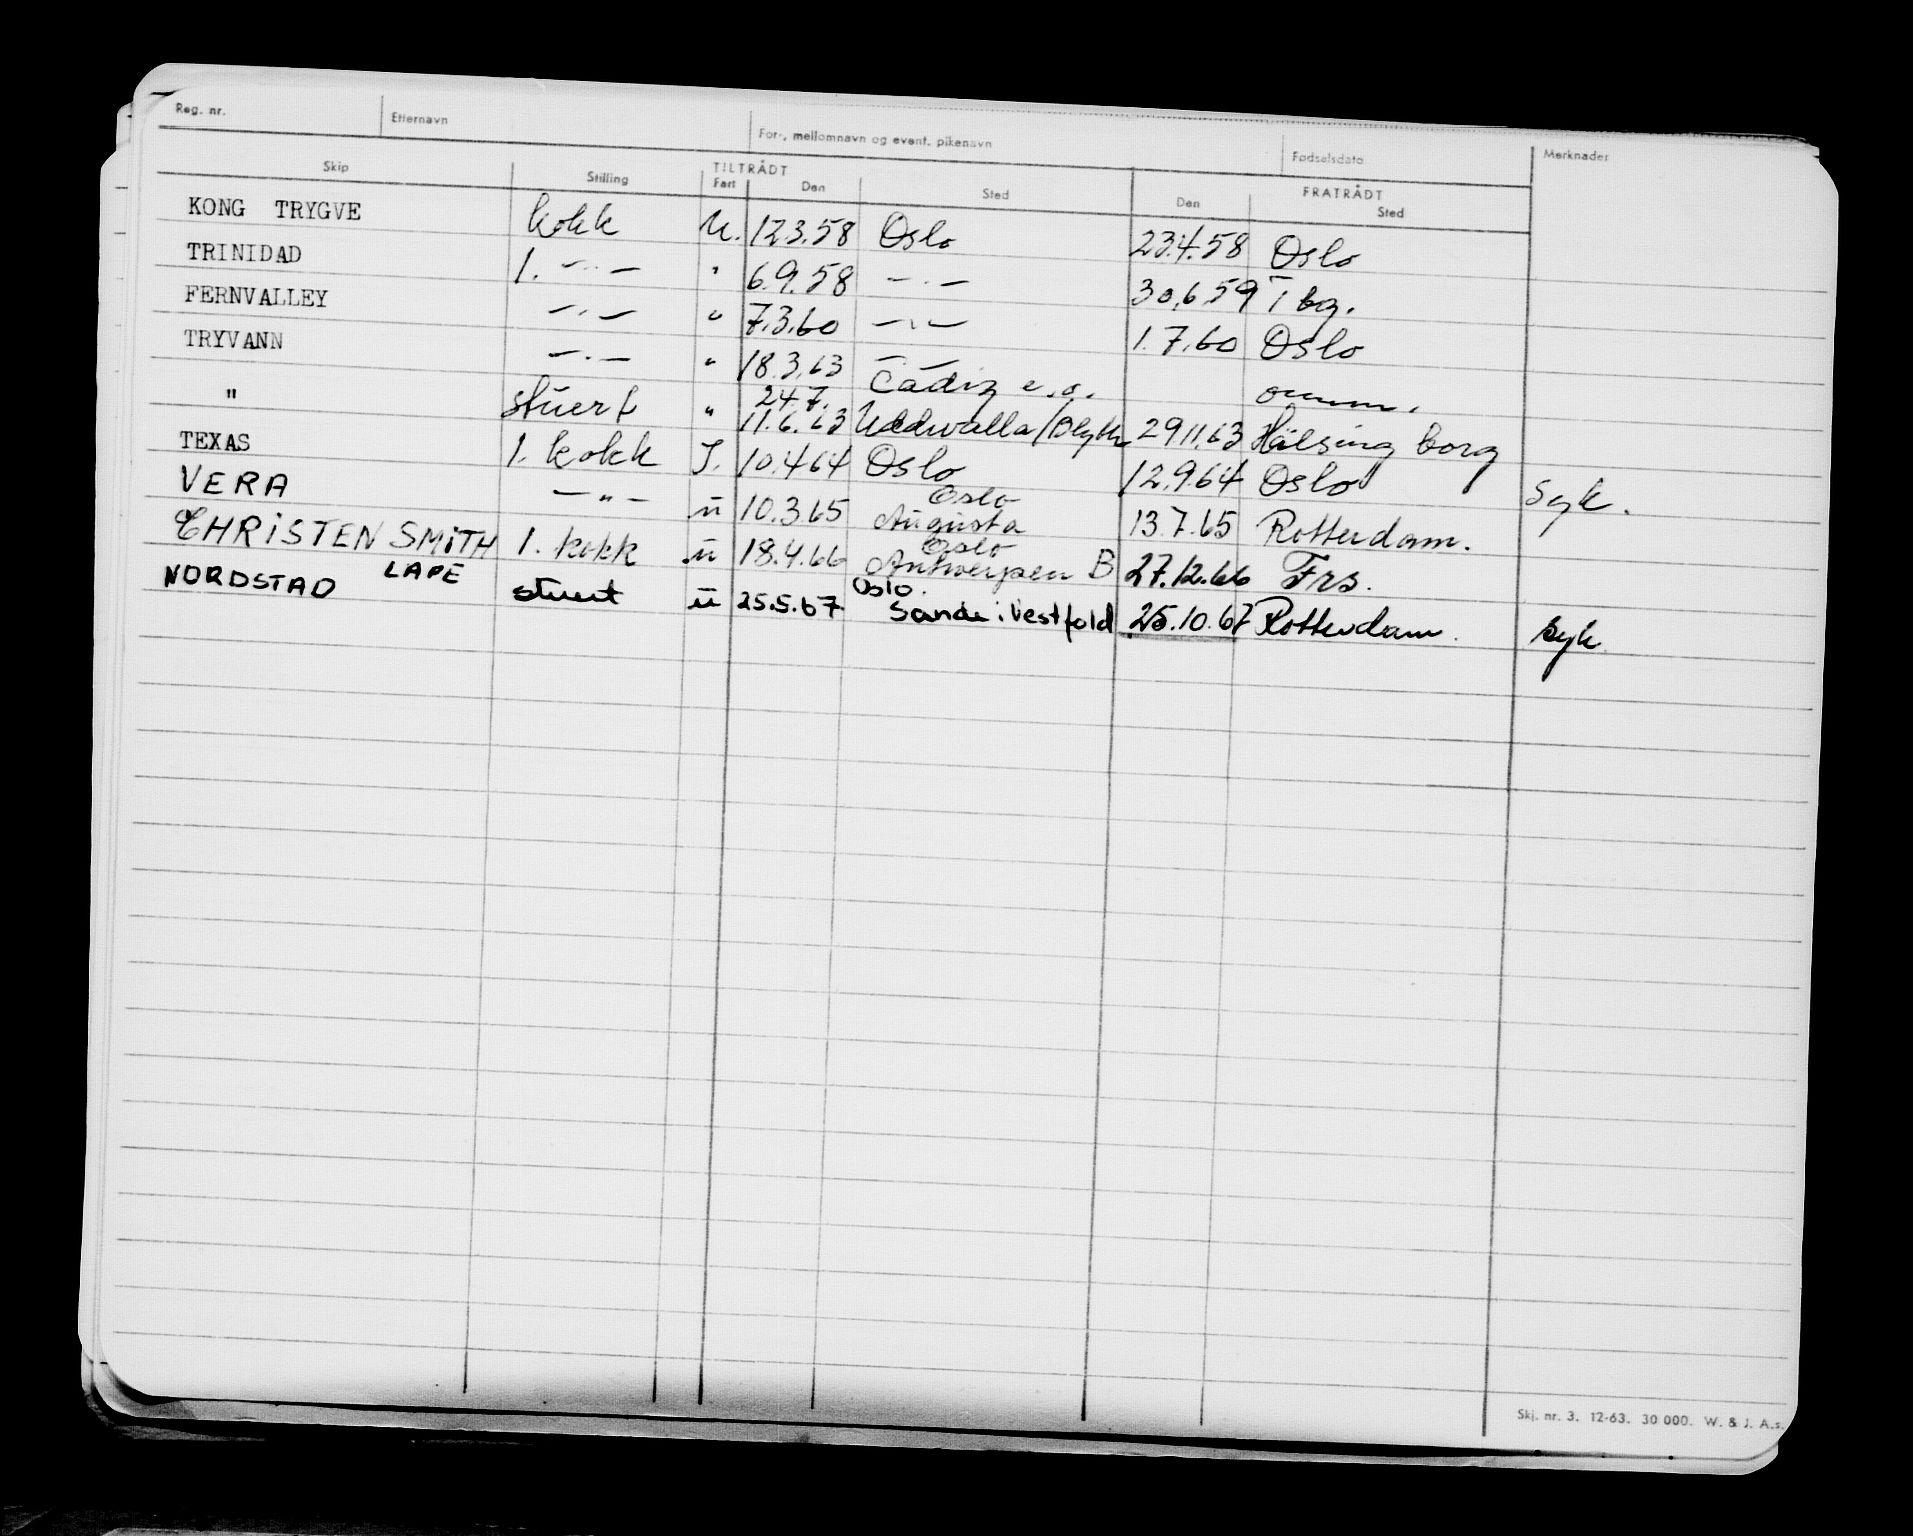 Reg. nr. Etternavn For-, mellomnavn og event. pikenavn Fødselsdato Merknader
Skip Stilling TILTRÅDT FRATRÅDT
Fart Den Sted Den Sted
KONG TRYGVE kokk U. 12.3.58 Oslo 23.4.58 Oslo
TRINIDAD 1. —..— " 6.9.58 — . — 30.6.59 Tbg.
FERNVALLEY — . — " 7.3.60 — . — 1.7.60 Oslo
TRYVANN — . — " 18.3.63 Cadiz e.o. omm.
24.7.
" stuert " 11.6.63 Uddevalla/Blyth 29.11.63 Hälsingborg
TEXAS 1. kokk J. 10.4.64 Oslo 12.9.64 Oslo Syk.
Oslo
VERA — " — ū 10.3.65 Augusta 13.7.65 Rotterdam.
Oslo
CHRISTEN SMITH 1. kokk ū 18.4.66 Antwerpen B 27.12.66 Frs.
LAPE Oslo.
NORDSTAD stuert ū 25.5.67 Sande i Vestfold 25.10.67 Rotterdam. syk
Skj. nr. 3. 12-63. 30 000. W. & J. A.s.